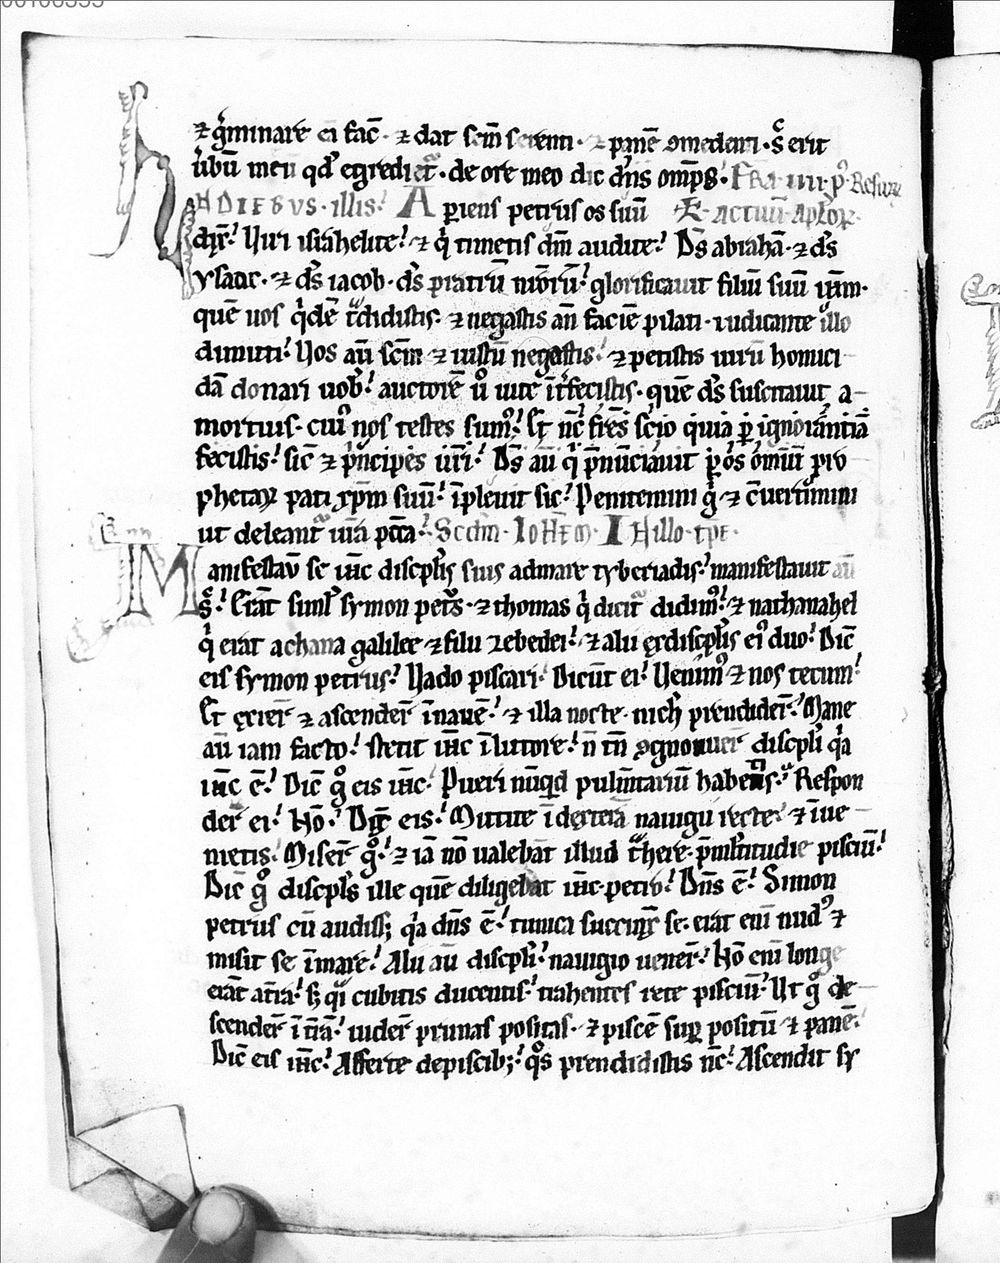 ⁊ gͥminare eā fac̄ · ⁊ dat sem̄ serenti · ⁊ panē ꝯmedenti · Sͨ erit
ūbū meū qd̓ egrediet̃ · de ore meo dic̄ dn̄s omp̄s · Fꝛa iiii · p̓ · Resurr
N DIEBVS · illis · Apiens petrus os suū Lc̄ actuū aplōꝝ
dix̄ · Uiri isrāhelite · ⁊ qͥ timetis dm̄ audite · Ds̄ abrahā · ⁊ ds̄
ysaac · ⁊ ds̄ iacob · ds̄ patrū nr̄oꝝ · glorificauit filiū suū ihm̄ ·
quē uos qͥdē tͣdidistis · ⁊ negastis an̄ faciē pilati · iudicante illo
dimitti · Uos aū scm̄ ⁊ iustū negastis · ⁊ petistis uirū homici
dā donari uob̄ · auctorē u̓o uite īt̄fecistis · quē ds̄ suscitauit a
mortuis · cui᷒ nos testes sum᷒ · Et nc̄ frēs scio quia ꝑ ignorantiā
fecistis · sic̄ ⁊ pͥncipes ur̄i · Ds̄ aū qͥ p̄nūciauit ꝑ os omiū pro
phetaꝝ pati xp̄m suū · īpleuit sic · Penitemini g̊ ⁊ ꝯuertimini
ut deleant̃ ur̄a pcc̄a · Scd̄m · IoHēm · IN illo · tp̄e ·
Manifestau̅ se ihc̄ discipl̄is suis ad mare tyberiadis · manifestauit aū
sͨ · Erāt siml̓ symon petr᷒ · ⁊ thomas qͥ dicit̃ didim᷒ · ⁊ nathanahel
qͥ erat a chana galilee ⁊ filii zebedei · ⁊ alii ex discipl̄is ei᷒ duo · Dic̄
eis symon petrus · Uado piscari · Dicūt ei · Uenim᷒ ⁊ nos tecum ·
Et exier̄ ⁊ ascender̄ ī nauē · ⁊ illa nocte · nich̄ prendider̄ · Mane
aū iam facto · stetit ihc̄ ī littore · n̄ tn̄ ꝯgnouer̄ discipl̄i qͥa
ihc̄ ē · Dic̄ g̊ eis ihc̄ · Pueri nūqͥd pulmtariū habetis · Respon
der̄ ei · Nō · Dix̄ eis · Mittite ī dexterā nauigii rete · ⁊ īue
nietis · Miser̄ g̊ · ⁊ iā nō ualebāt illud tͣhere · p̄ multitudie pisciū ·
Dic̄ g̊ discipl̄s ille quē diligebat ihc̄ petro · Dn̄s ē · Simon
petrus cū audiss; qͥa dn̄s ē · tunica succinx̄ se · erat eni nud᷒ ⁊
misit se ī mare · Alii aū discipl̄i · nauigio uener̄ · Nō eni longe
erāt a t̄ra · s; qͣi cubitis ducentis · trahentes rete pisciū · Ut g̊ de
scender̄ ī t̄rā · uider̄ prunas positas · ⁊ piscē suꝑ positū ⁊ panē ·
Dic̄ eis ihc̄ · Afferte de piscib; · qͦs prendidistis nc̄ · Ascendit sy